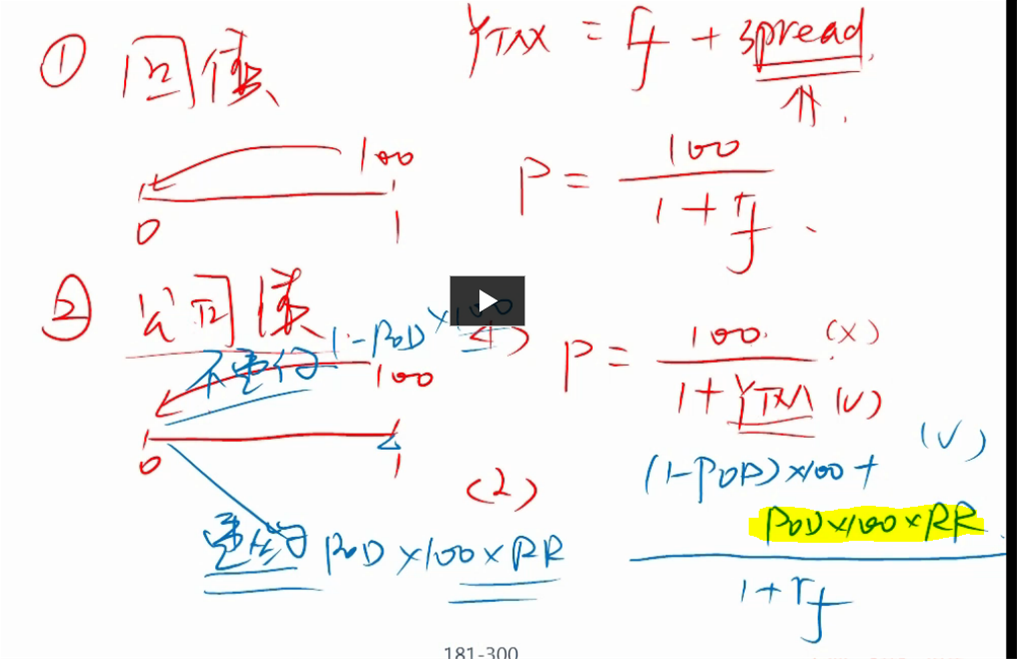 ① 国债
YTM = rf + spread
100
0 1
P = 100 / 1 + rf
② 公司债
不违约 1-POD × 100
100
0 1
(1) P = 100 (×) / 1 + YTM (√)
违约 POD × 100 × RR
(2) (1-POD) × 100 + (√)
POD × 100 × RR
1 + rf
181-300